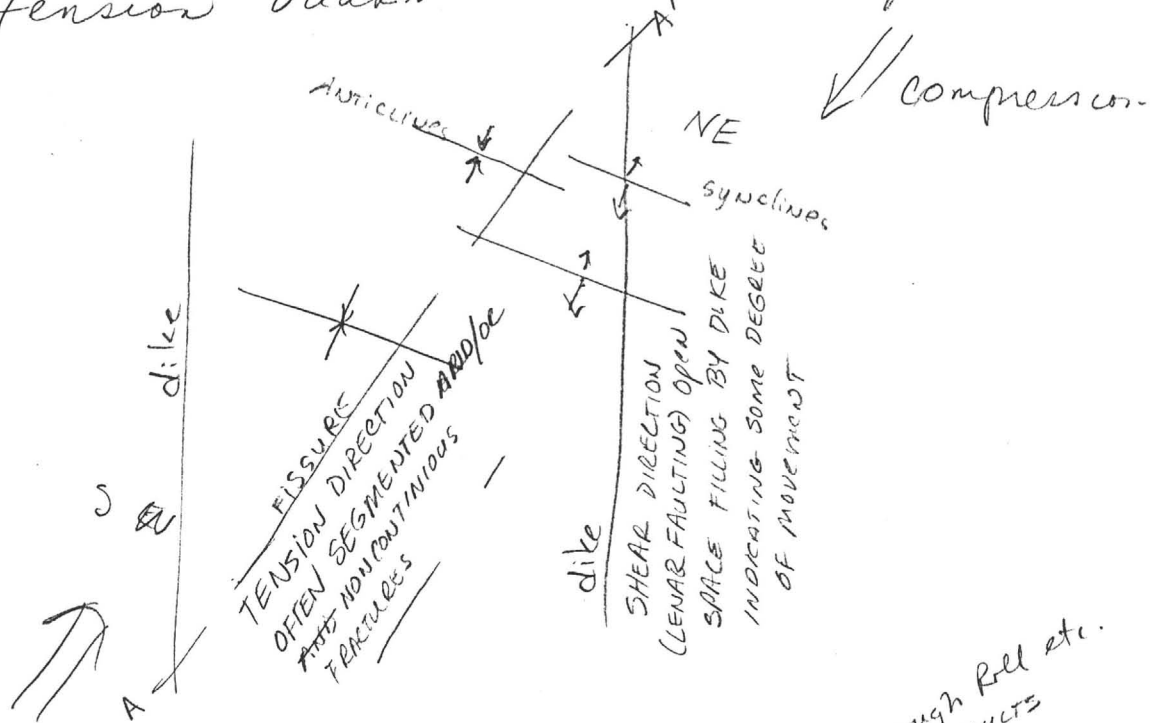 Tension
A'
compression
Anticlines
NE
Synclines
dike
S
FISSURE
TENSION DIRECTION
OFTEN SEGMENTED AND/OR
AND NONCONTINIOUS
FRACTURES
dike
SHEAR DIRECTION
(LENAR FAULTING) OPEN
SPACE FILLING BY DIKE
INDICATING SOME DEGREE
OF MOVEMENT
A
Roll etc.